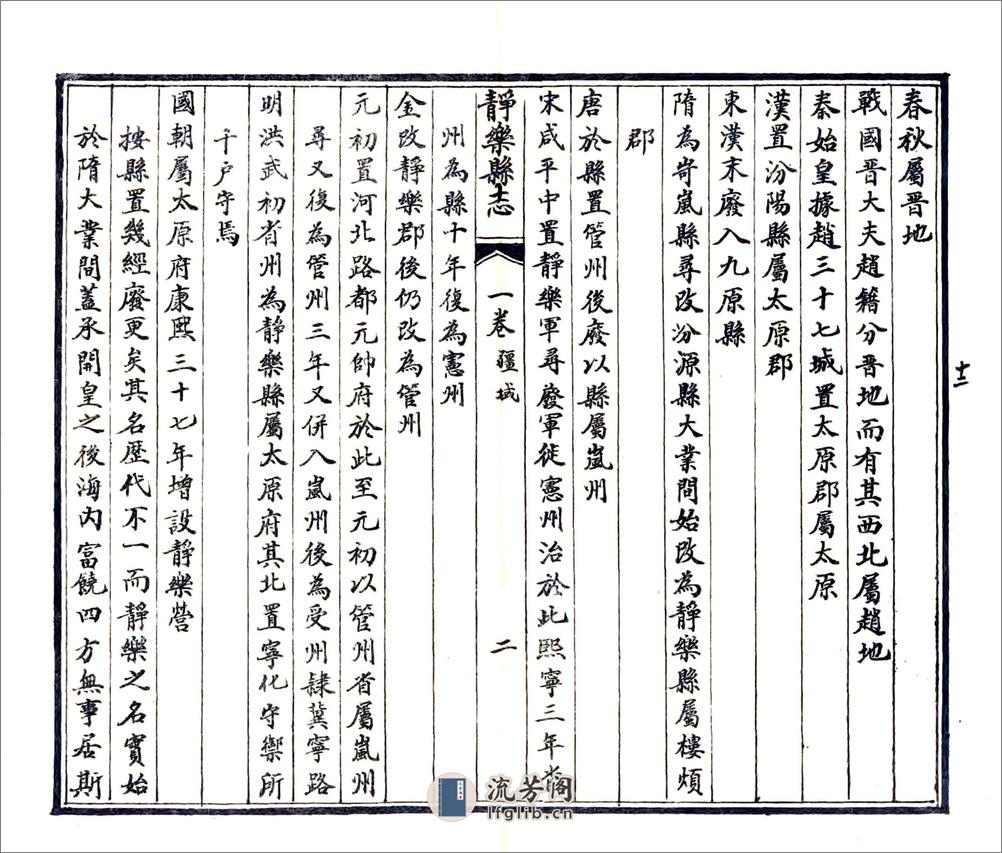 春秋屬晉地
戰國晉大夫趙籍分晉地而有其西北屬趙地
秦始皇據趙三十七城置太原郡屬太原
漢置汾陽縣屬太原郡
東漢末廢入九原縣
隋為岢嵐縣尋改汾源縣大業間始改為靜樂縣屬樓煩
郡
唐於縣置管州後廢以縣屬嵐州
宋咸平中置靜樂軍尋廢軍徙憲州治於此熙寧三年
靜樂縣志
一卷 疆域
二
州為縣十年復為憲州
金改靜樂郡後仍改為管州
元初置河北路都元帥府於此至元初以管州省屬嵐州
尋又復為管州三年又併入嵐州後為受州隸冀寧路
明洪武初省州為靜樂縣屬太原府其北置寧化守禦所
千戶守焉
國朝屬太原府康熙三十七年增設靜樂營
按縣置幾經廢更矣其名歷代不一而靜樂之名實始
於隋大業間蓋承開皇之後海內富饒四方無事居斯
十二
流芳閣
lfglib.cn